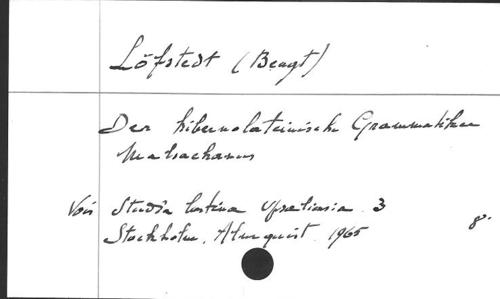 Löfstedt (Bengt)
Der hibernolateinische Grammatiker
Malsachanus
Voir Studia latina Upsaliensia. 3
Stockholm, Almquist. 1965 8°.